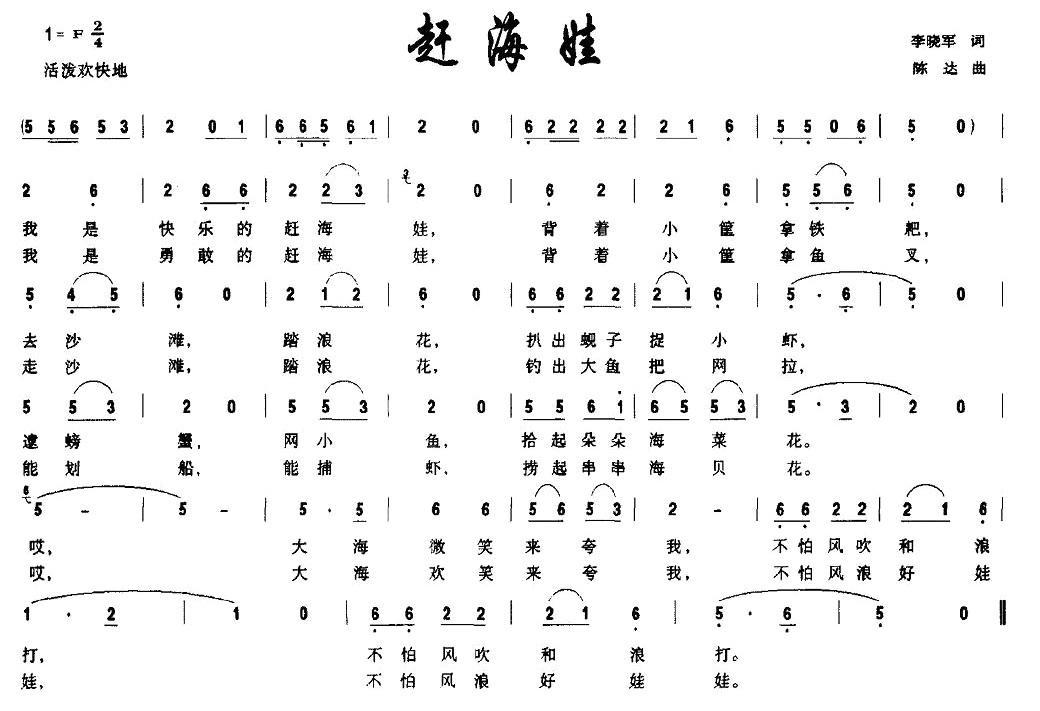 赶海娃
1=F 2/4
活泼欢快地
李晓军 词
陈达 曲
(5 5 6 5 3 | 2 0 1 | 6 6 5 6 1 | 2 0 | 6 2 2 2 2 | 2 1 6 | 5 5 0 6 | 5 0) |
2 6 | 2 6 6 | 2 2 3 | 2 2 0 | 6 2 | 2 6 | 5 5 6 | 5 0 |
我是快乐的赶海娃,背着小筐拿铁耙,
我是勇敢的赶海娃,背着小筐拿鱼叉,
5 4 5 | 6 0 | 2 1 2 | 6 0 | 6 6 2 2 | 2 1 6 | 5 · 6 | 5 0 |
去沙滩,踏浪花,扒出蚬子捉小虾,
走沙滩,踏浪花,钓出大鱼把网拉,
5 5 3 | 2 0 | 5 5 3 | 2 0 | 5 5 6 1 | 6 5 5 3 | 5 · 3 | 2 0 |
逮螃蟹,网小鱼,拾起朵朵海菜花。
能划船,能捕虾,捞起串串海贝花。
6 5 - | 5 - | 5 · 5 | 6 6 | 5 6 5 3 | 2 - | 6 6 2 2 | 2 1 6 |
哎,大海微笑来夸我,不怕风吹和浪
哎,大海欢笑来夸我,不怕风浪好娃
1 · 2 | 1 0 | 6 6 2 2 | 2 1 6 | 5 · 6 | 5 0 ‖
打,不怕风吹和浪打。
娃,不怕风浪好娃娃。